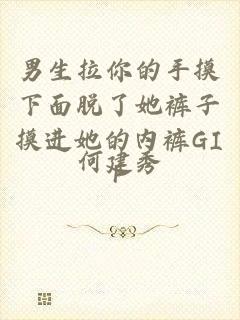 男生拉你的手摸
下面脱了她裤子
摸进她的内裤GI
何建秀